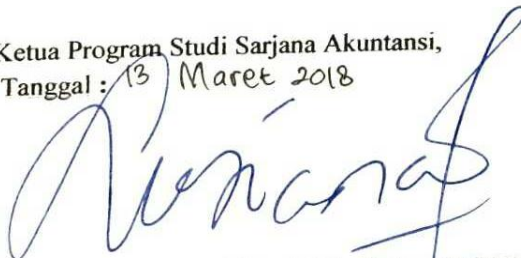 Ketua Program Studi Sarjana Akuntansi,
Tanggal : 13 Maret 2018